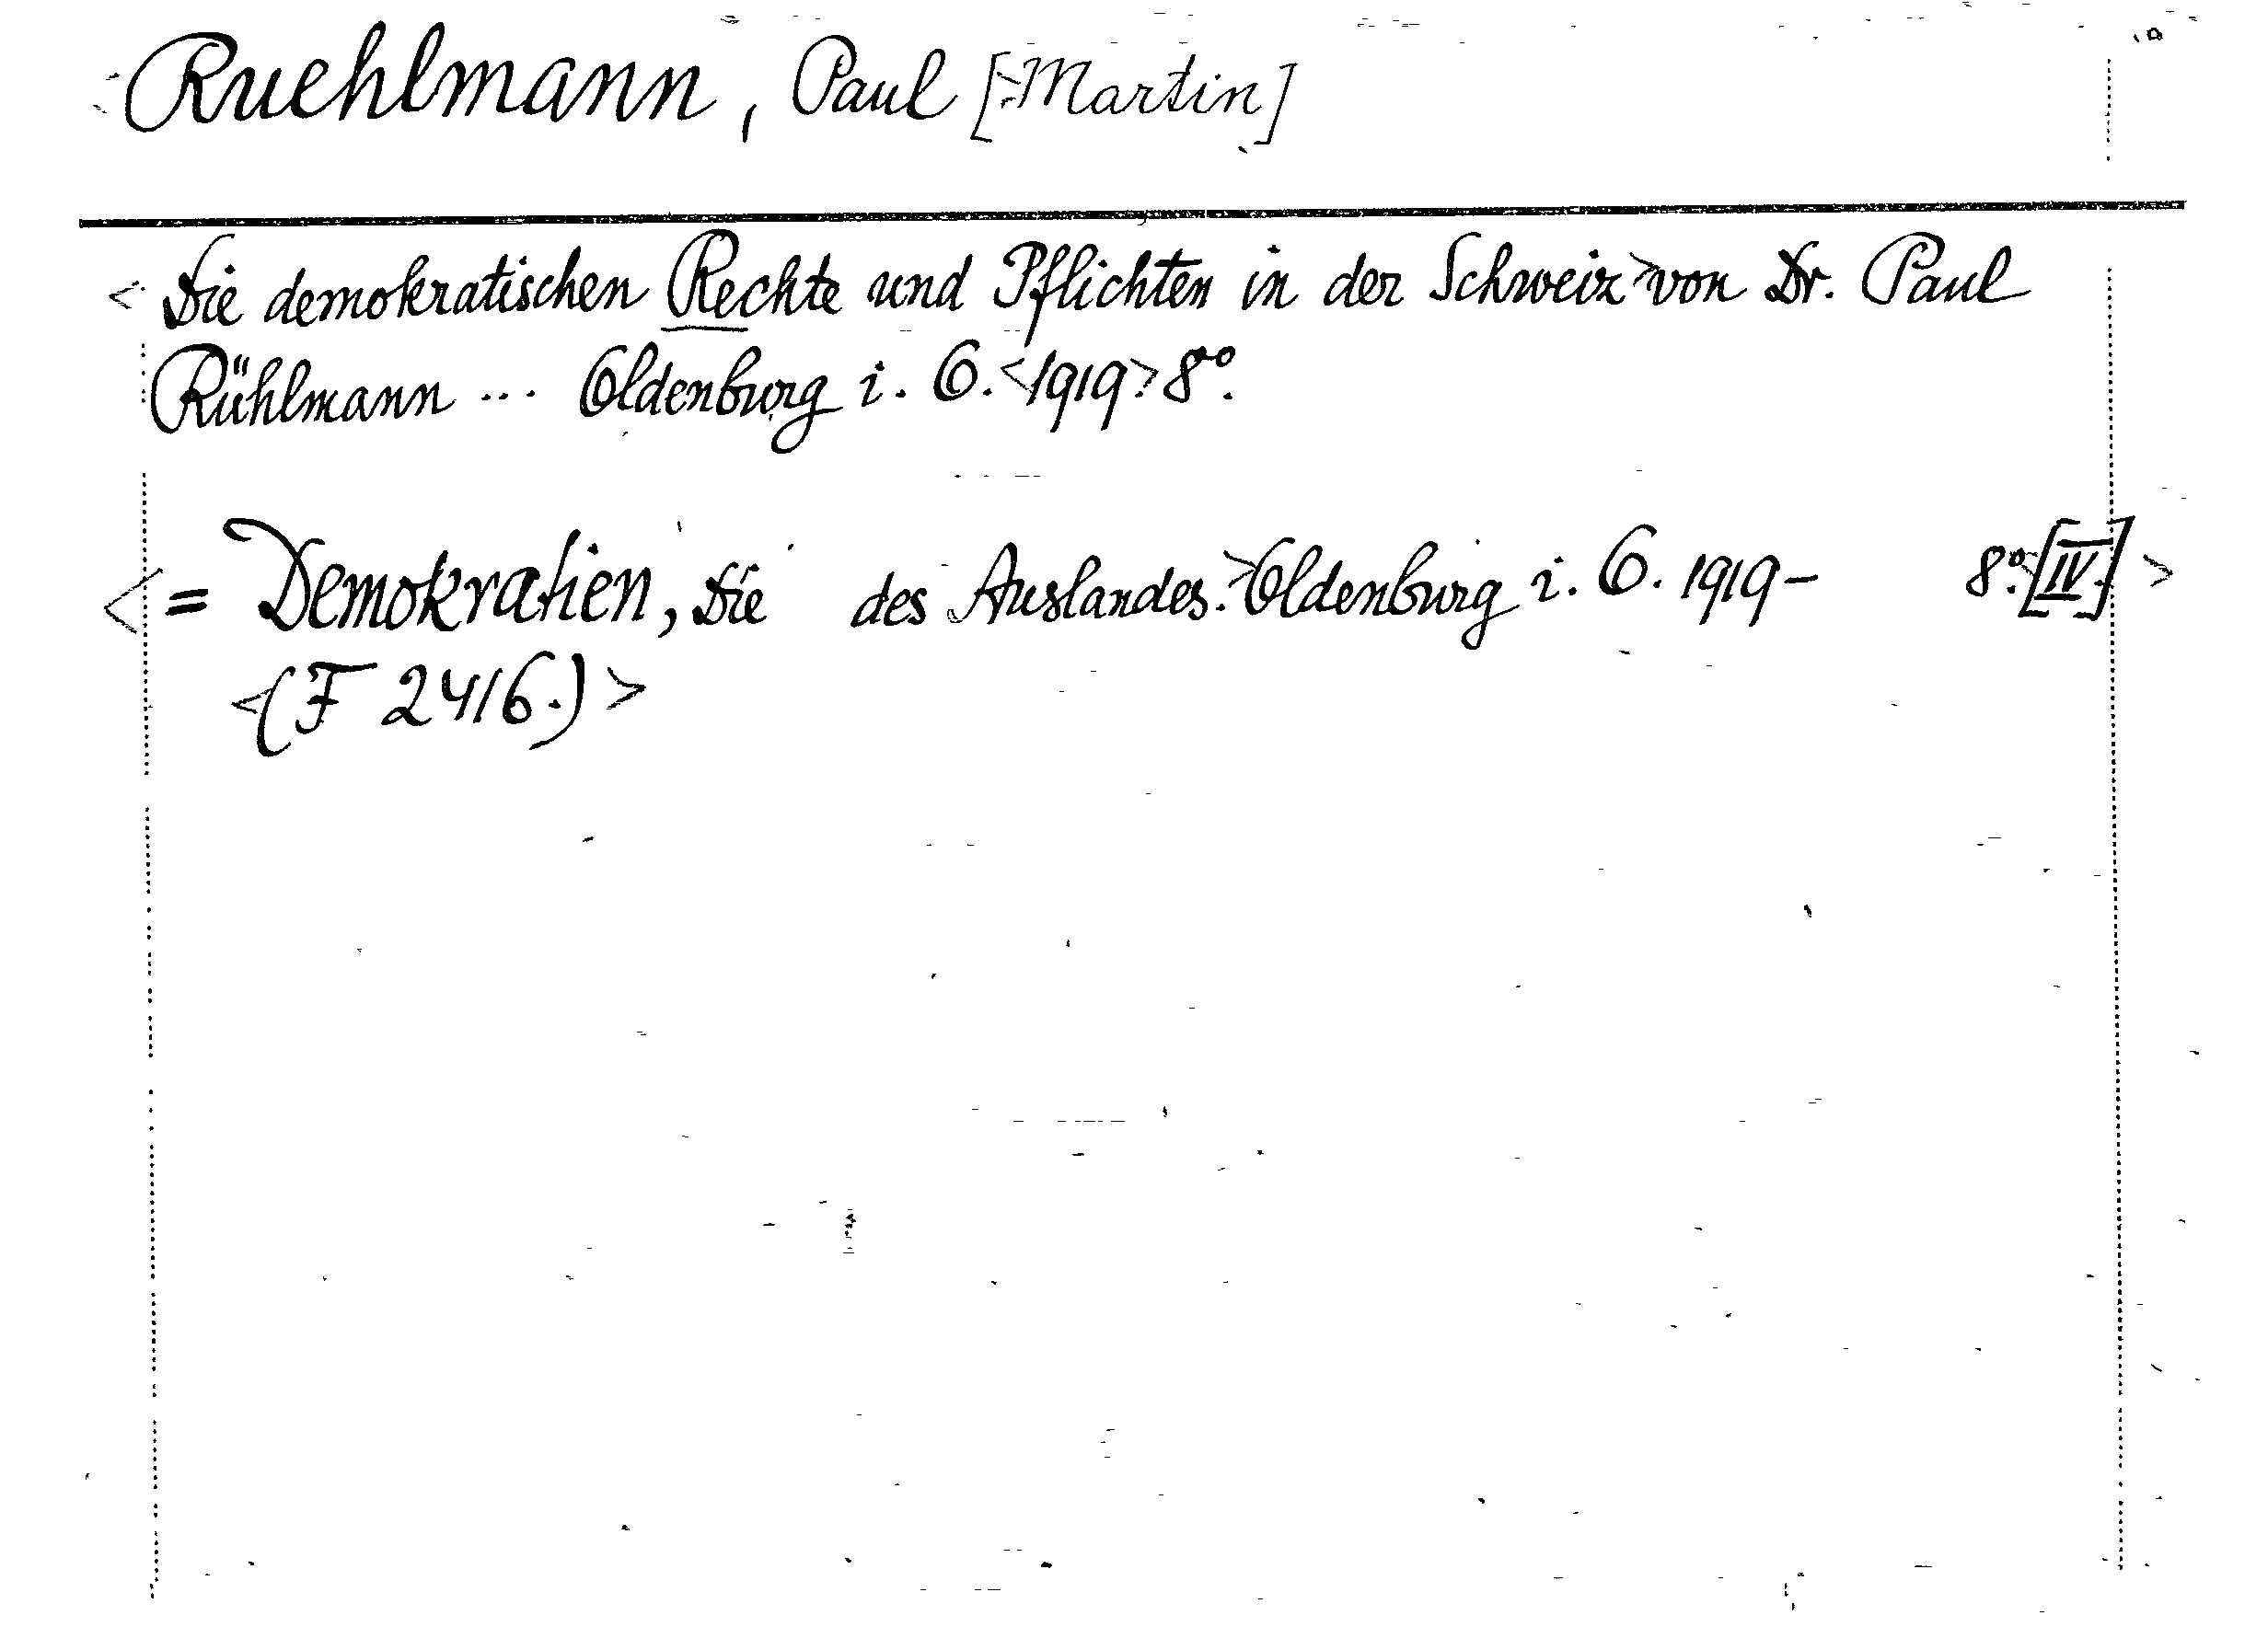 Ruehlmann, Paul [Martin]
< Die demokratischen Rechte und Pflichten in der Schweiz > von Dr. Paul
Rühlmann ... Oldenburg i. O. <1919> 8°.
< = Demokratien, Die des Auslandes. > Oldenburg i. O. 1919 – 8°. [IV] >
<(F 2416.)>